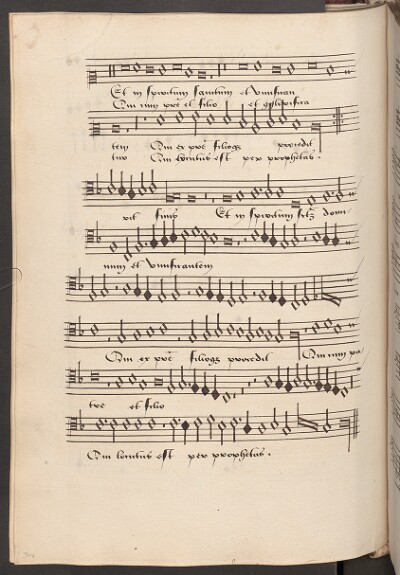 Et in spiritum sanctum et vivifican
Qui cum patre et filio et glorifica
tem Qui ex patre filioque procedit
tur Qui locutus est per prophetas.
Et in spiritum domi
num et vivificantem
Qui ex patre filioque procedit Qui cum pa
tre et filio
Qui locutus est per prophetas.